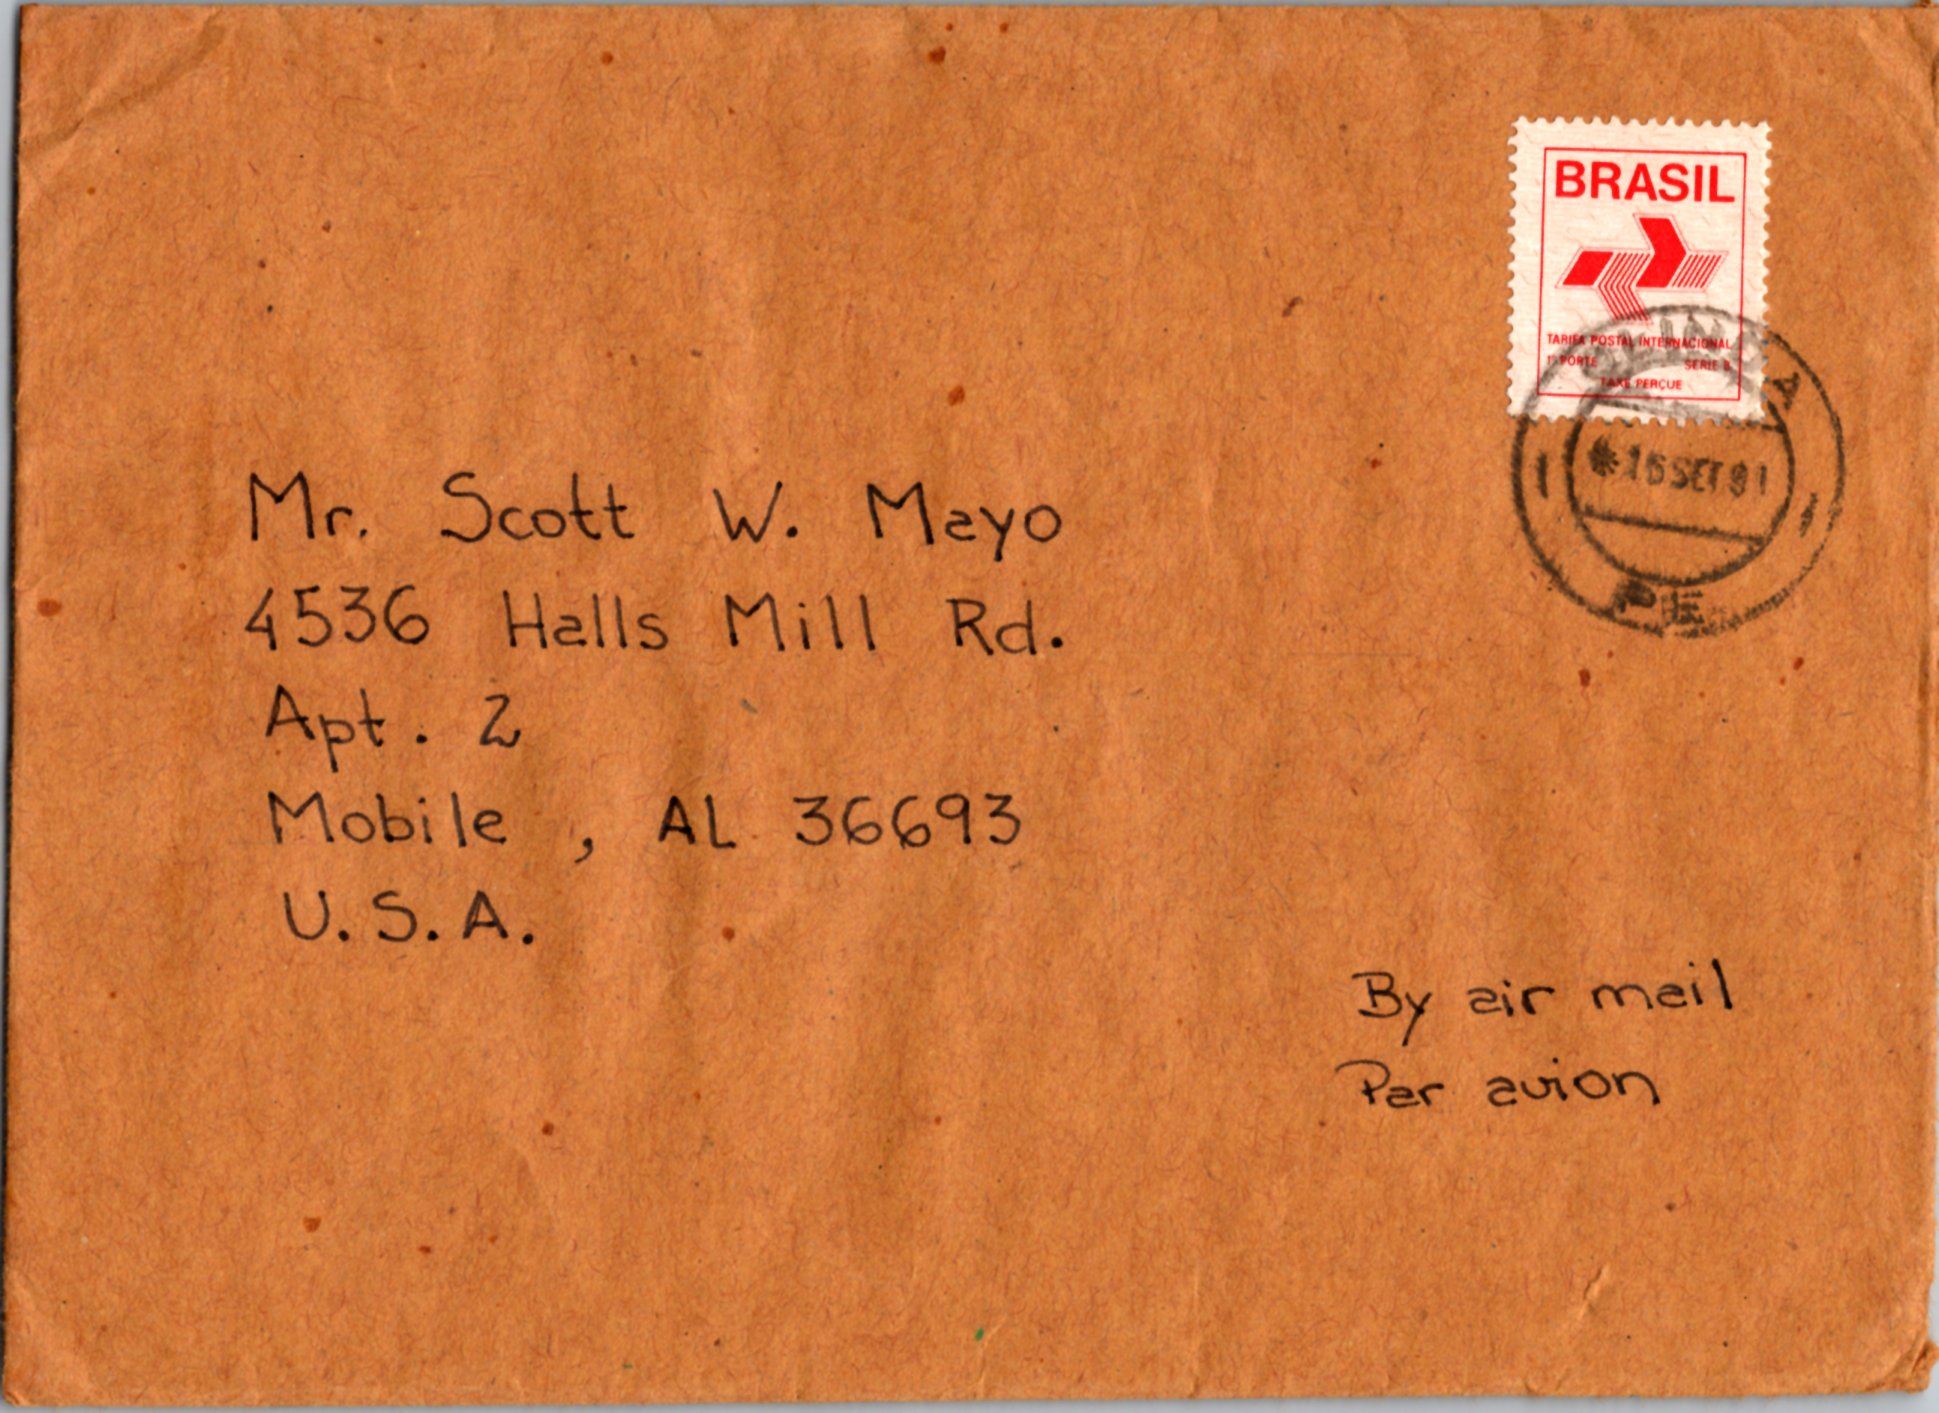 BRASIL
TARIFA POSTAL INTERNACIONAL
1º PORTE SÉRIE B
TAXE PERÇUE
OLINDA
16 SET 91
PE
Mr. Scott W. Mayo
4536 Halls Mill Rd.
Apt. 2
Mobile, AL 36693
U.S.A.
By air mail
Par avion